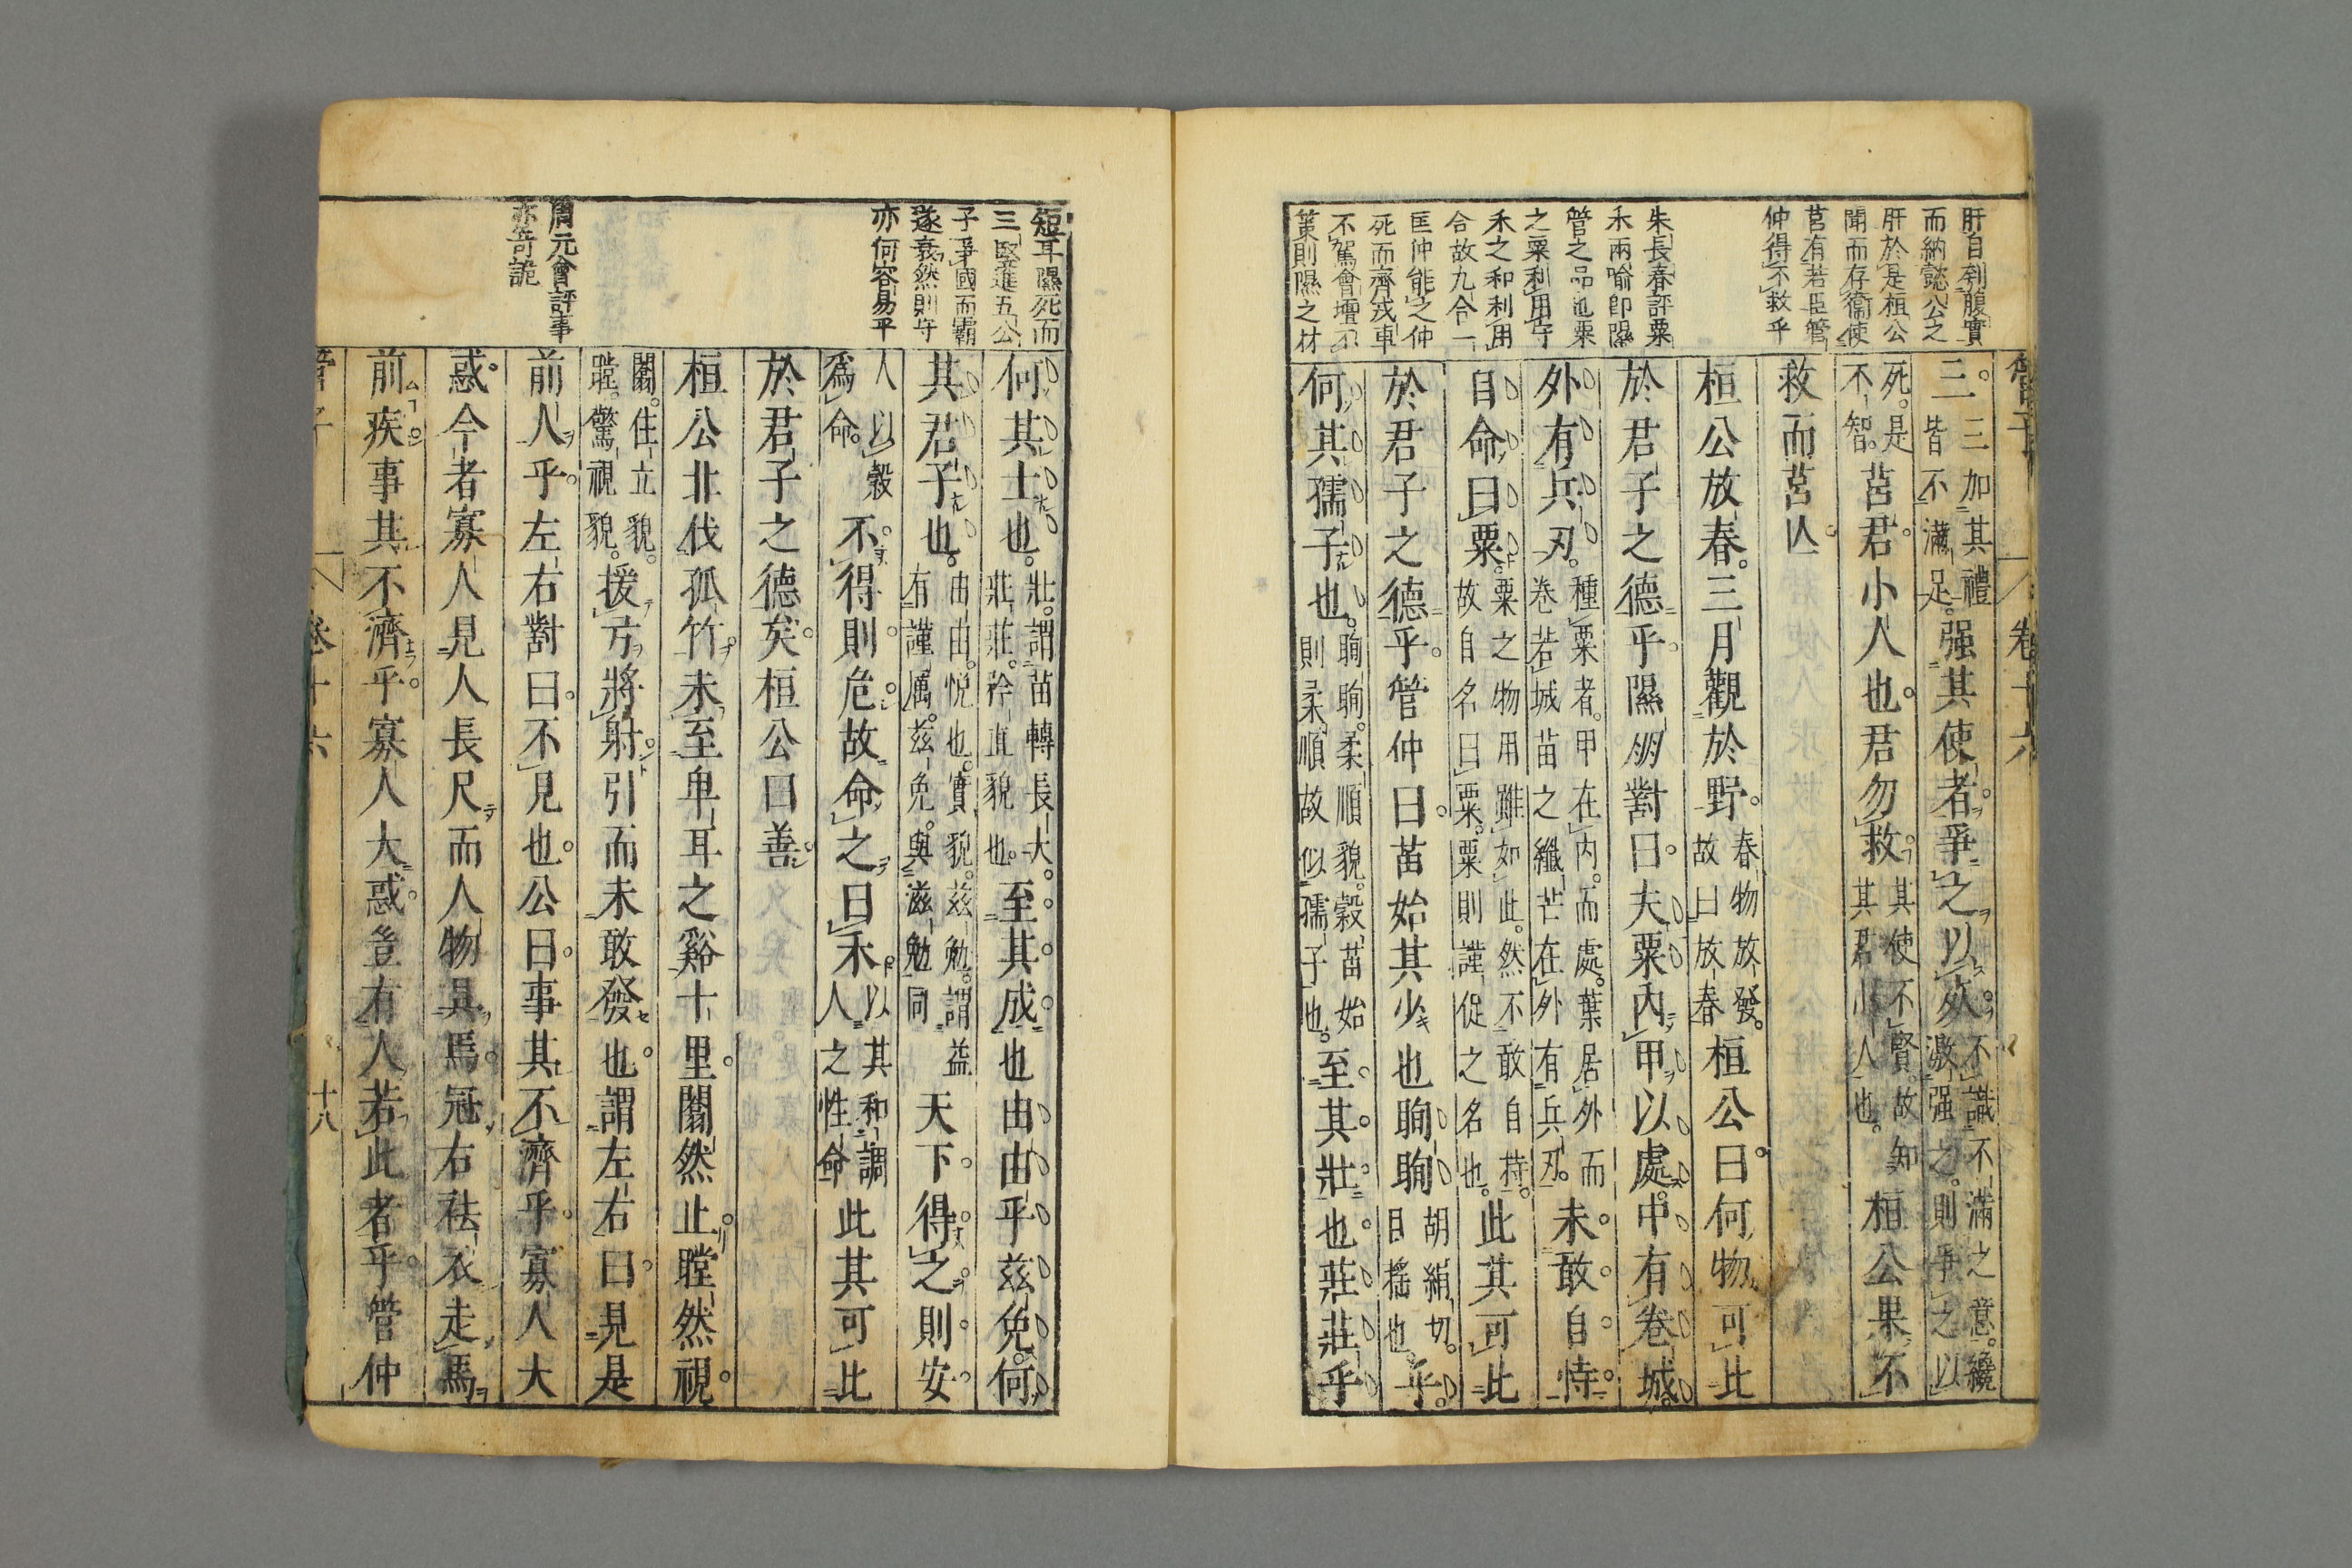 肝自刳腹實
而納懿公之
肝於是桓公
聞而存衞使
莒有若臣管
仲得不救乎
朱長春評粟
禾兩喻卽隰
管之品也粟
之粟利用守
禾之和利用
合故九合一
匡仲能之仲
死而齊戎車
不駕會壇不
則隰之材
管子　卷十六
三。三加其禮皆不滿足。强其使者。爭之以死。不識不滿之意。纔激强之。則爭之以
死。是不智。莒君。小人也。君勿救。其使不賢。故知其君小人也。桓公果不
救而莒亾。
桓公放春。三月觀於野。春物放發。故曰放春桓公曰。何物可比
於君子之德乎。隰朋對曰。夫粟內甲以處。中有卷城。
外有兵刃。種粟者。甲在內。而處。葉居外而卷若城苗之纖芒在外有兵刃。未敢自恃。
自命曰粟。粟之物用雖如此。然不敢自恃。故自名曰粟。粟則謹促之名也。此其可比
於君子之德乎。管仲曰。苗始其少也眴眴胡絹切。目搖也。乎。
何其孺子也。眴眴。柔順貌。穀苗始則柔順故似孺子也。至其壯也。莊莊乎
短耳隰死而
三豎進五公
子爭國而霸
遂衰然則守
亦何容易乎
周元會評事
亦奇詭
何其士也。壯。謂苗轉長大。莊莊。矜直貌也。至其成也由由乎茲免。何
其君子也。由由。悅也。實貌。茲勉。謂益有謹厲。茲免。與滋勉同天下得之則安。
人以穀爲命。不得則危。故命之曰禾。以其和調人之性命此其可比
於君子之德矣。桓公曰善。
桓公北伐孤竹。未至卑耳之谿十里。闟然止。瞠然視。
闟。住立貌。瞠。驚視貌。援弓將射。引而未敢發也。謂左右曰。見是
前人乎。左右對曰。不見也。公曰。事其不濟乎。寡人大
惑。今者寡人見人長尺而人物具焉。冠右祛衣走馬
前疾。事其不濟乎。寡人大惑。豈有人若此者乎。管仲
管子　卷十六　十八